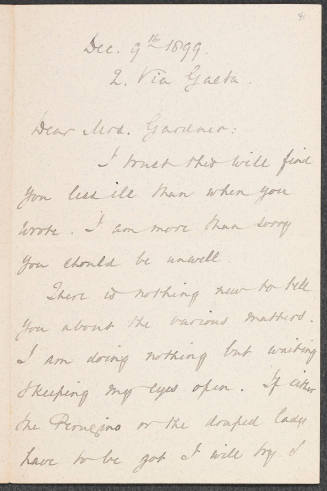 Dec. 9th 1899.
2. Via Gaeta.
Dear Mrs. Gardner:
I trust this will find
you less ill than when you
wrote. I am more than sorry
you should be unwell.
There is nothing new to tell
you about the various matters.
I am doing nothing but waiting
& keeping my eyes open. If either
the Perugino or the draped lady
have to be got I will try &